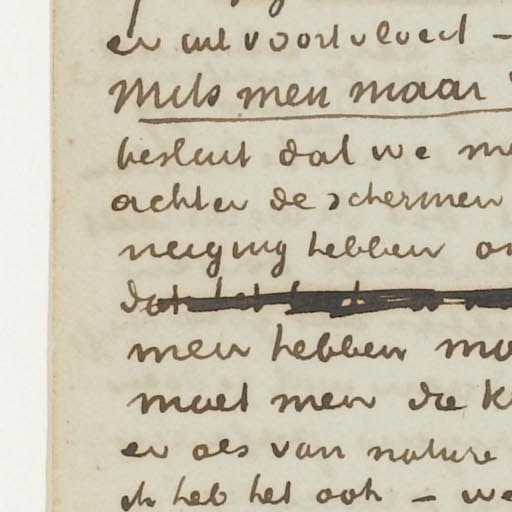 er uit voortvloeit –
Mits men maar
besluit dat we me
achter de schermen
neiging hebben om
dat het
men hebben mo
moet men de k
er als van nature
ik heb het ook – we